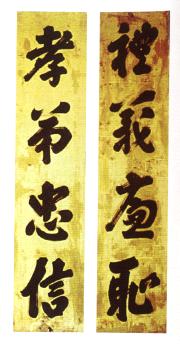 禮義廉恥
孝弟忠信